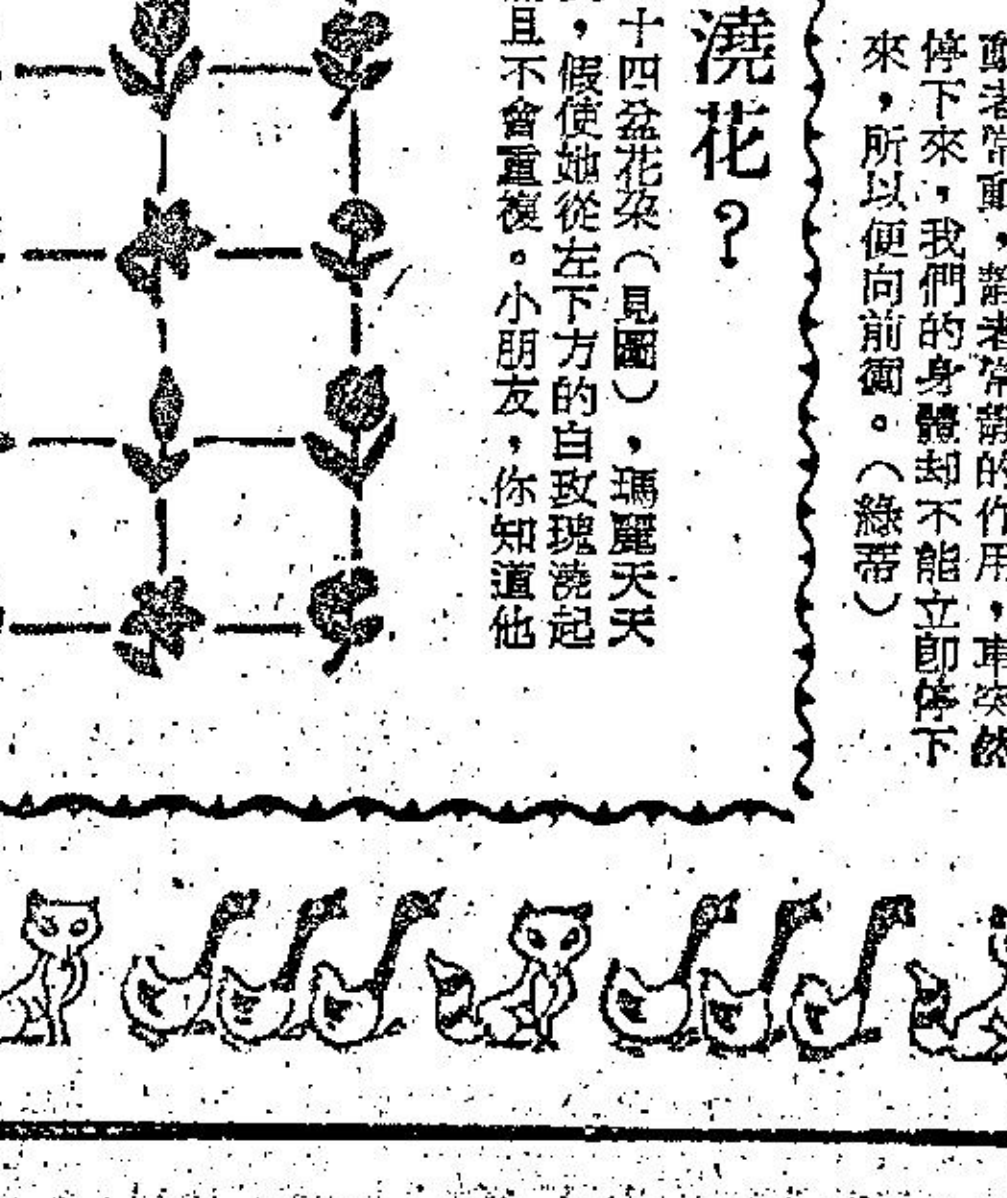 動者常動，靜者常靜的作用，車突然
停下來，我們的身體却不能立卽停下
來，所以便向前衝。（綠蒂）
澆花？
十四盆花朶（見圖），瑪麗天天
，假使她從左下方的白玫瑰澆起
且不會重複。小朋友，你知道他